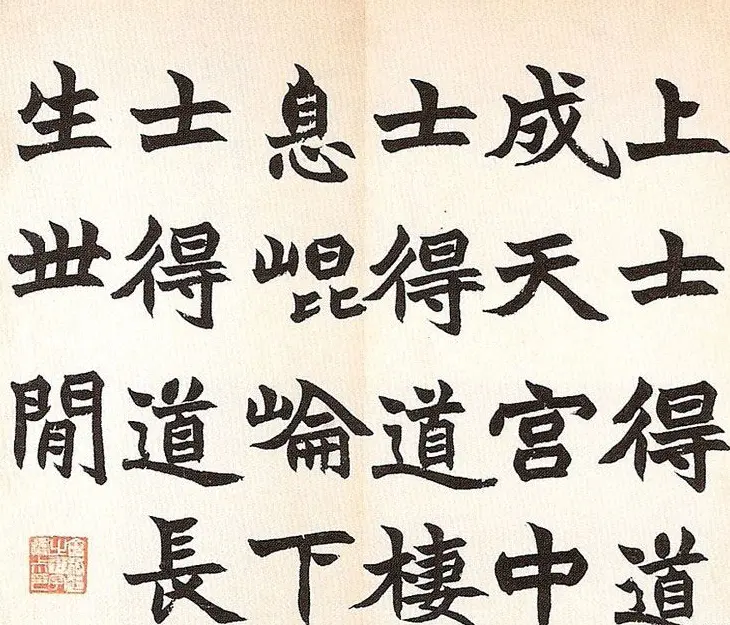 上士得道
成天宮中
士得道棲
息崐崘下
士得道長
生世閒